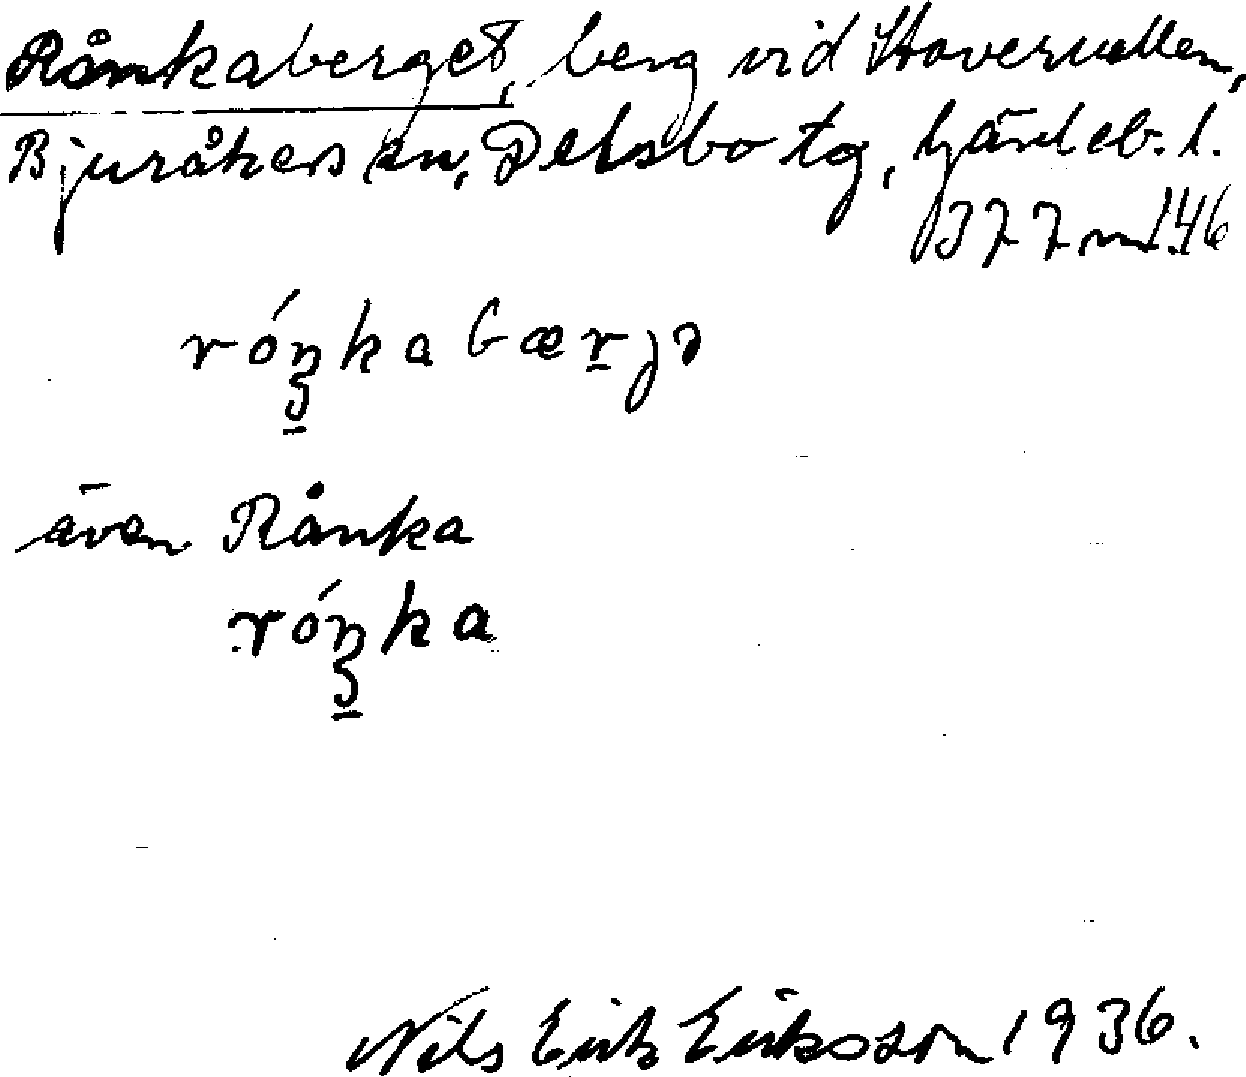 Rånkaberget, berg vid Stavervallen,
Bjuråkers sn, Delsbo tg, Gävleb. l.
377 m 146
róŋkabærjə
även Rånka
róŋka
Nils Erik Eriksson 1936.